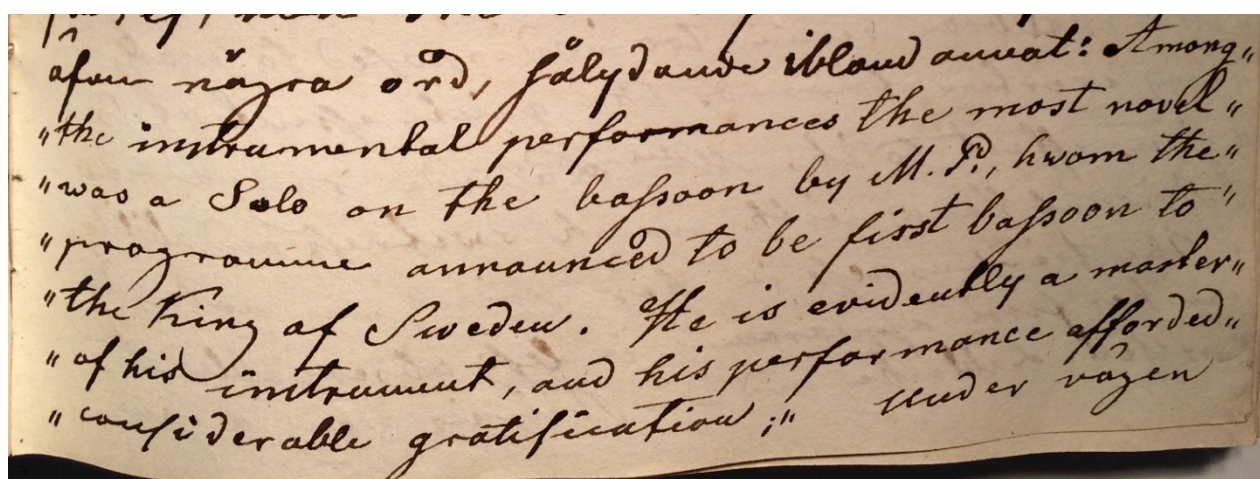 äfven några ord, sålydande ibland annat: Among„
„the instrumental performances the most novel„
„was a Solo on the bassoon by M. P., hwom the„
„programme announced to be first bassoon to„
„the King of Sweden. He is evidently a master„
„of his instrument, and his performance afforded„
„considerable gratification;„ Under vägen